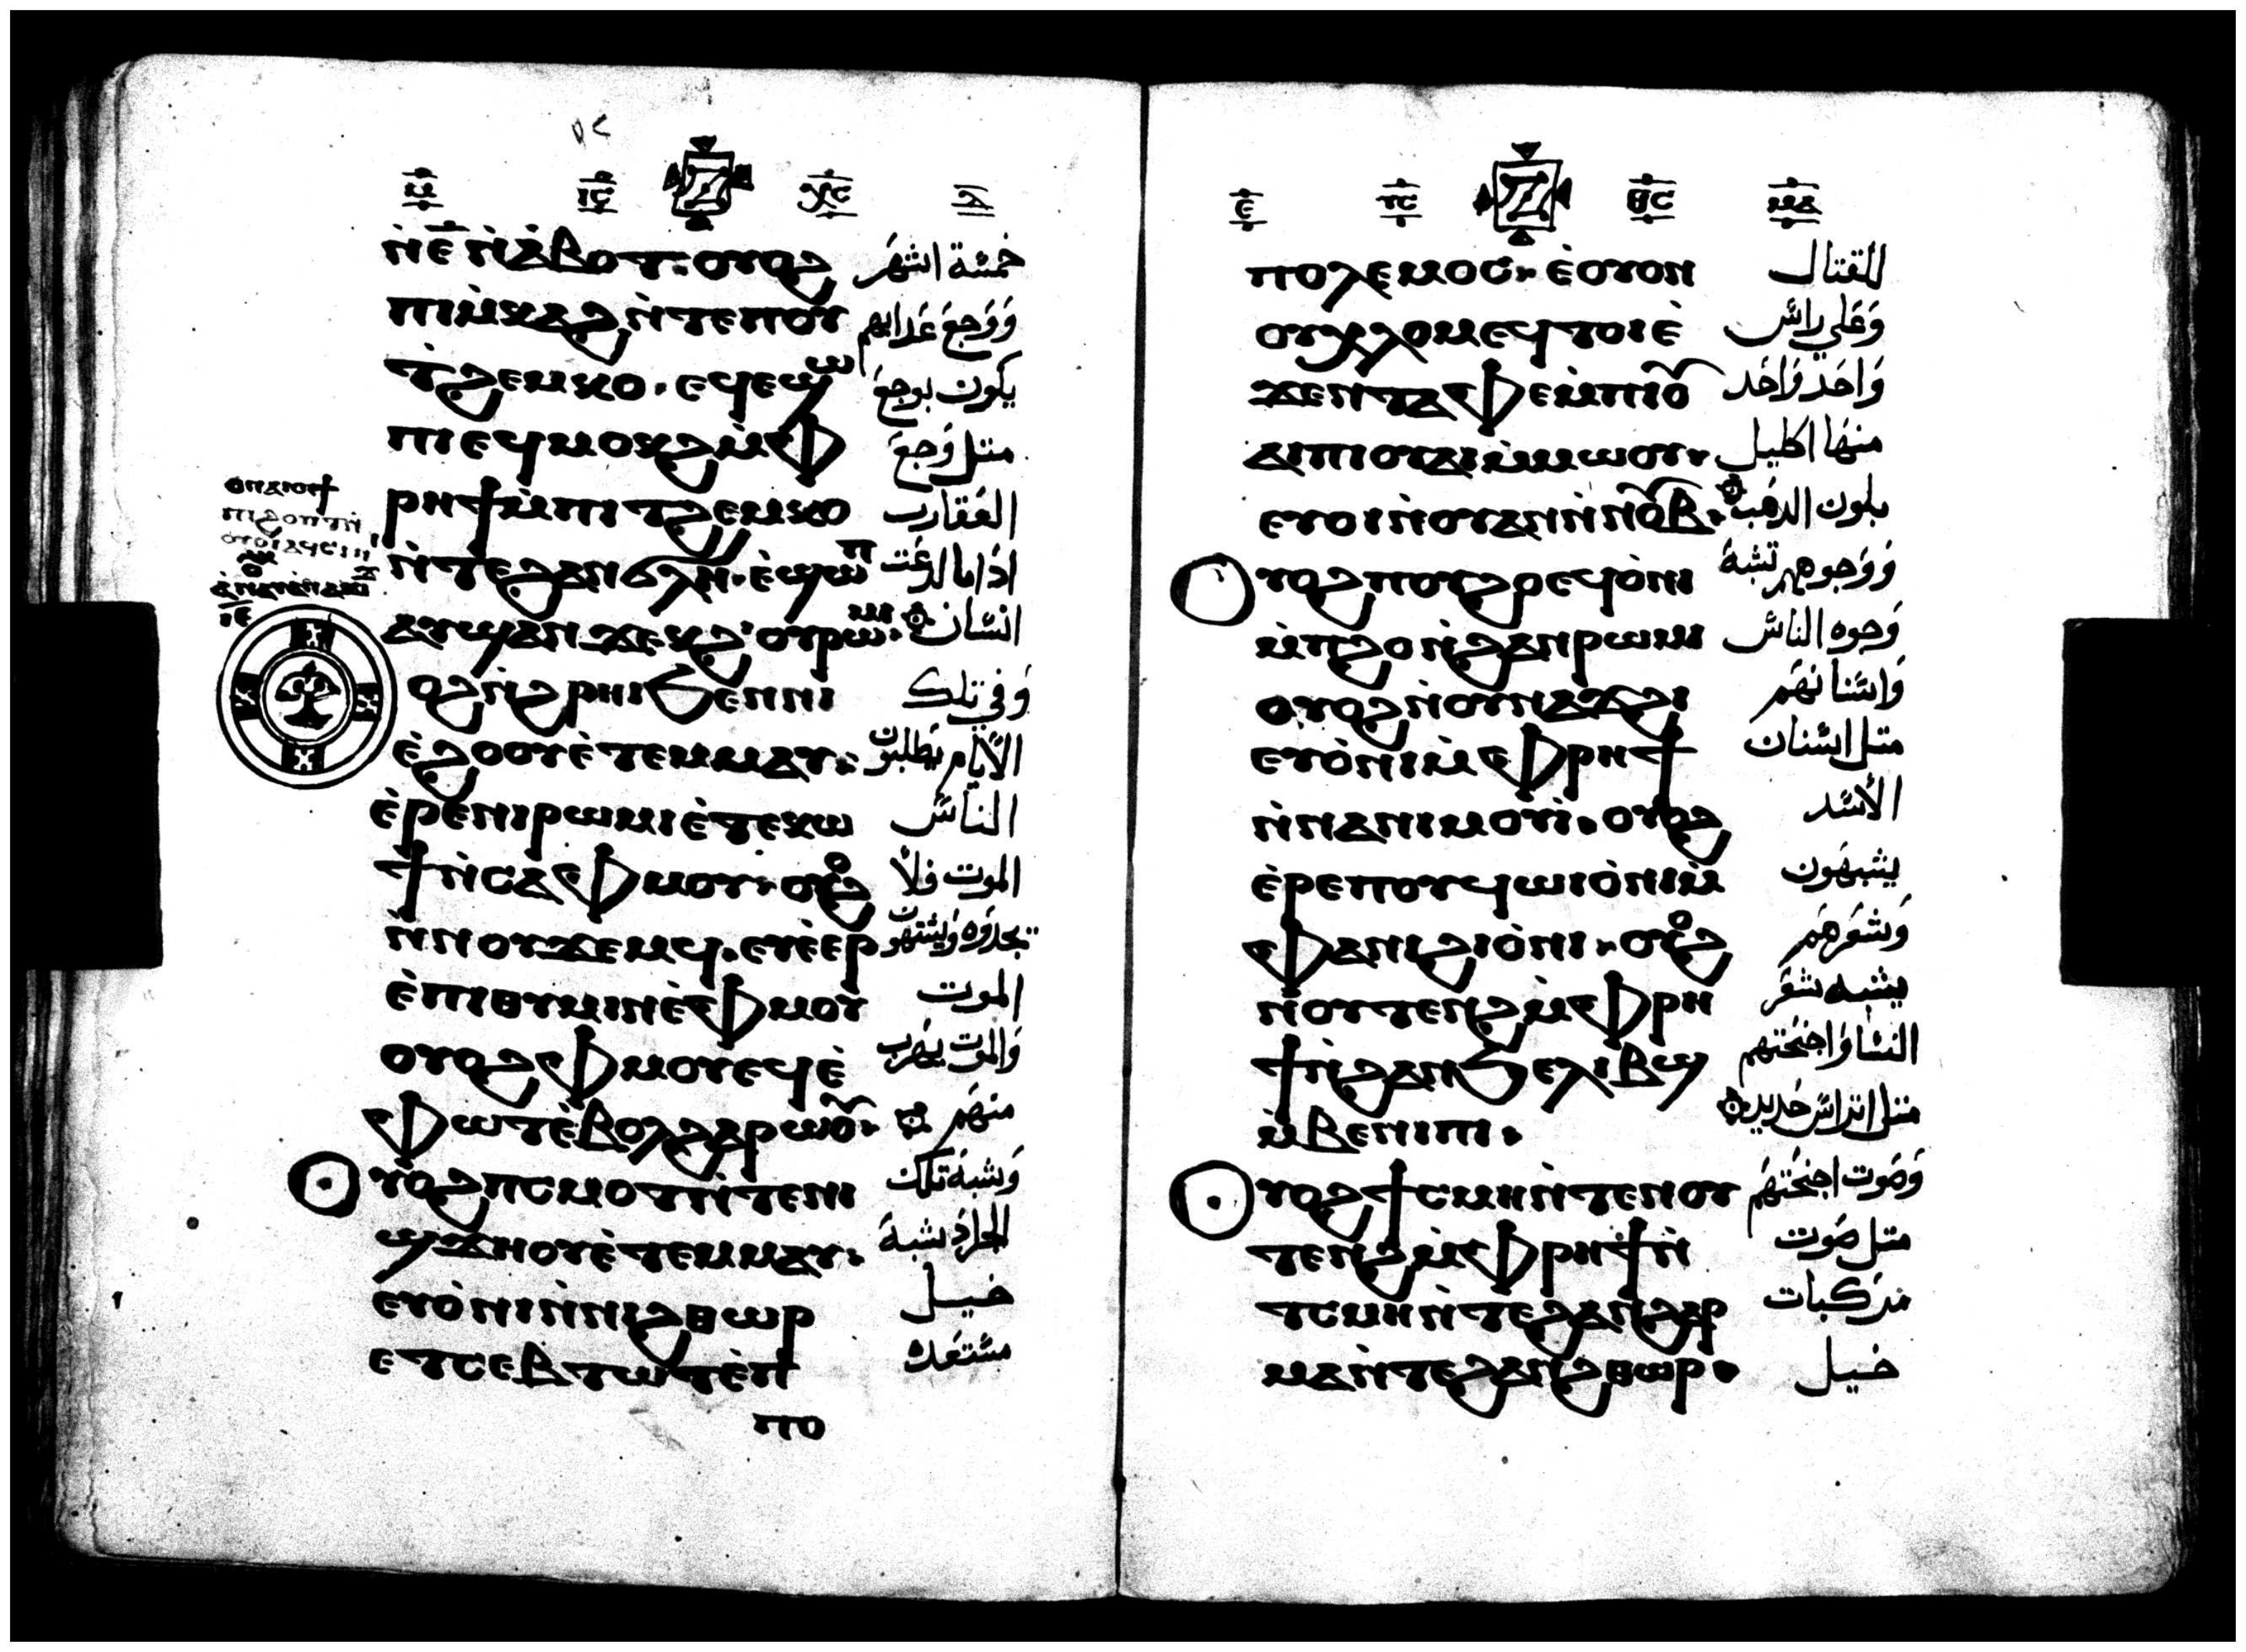 ⲙ̅ ⲓ̅ⲥ̅ ⲭ̅ⲥ̅
ⲛ̀ⲉ̅ⲛ̀ⲁ̀ⲃⲟⲧ· ⲟⲩⲟϩ خمسة اشهر
ⲡⲓⲙ̀ⲕⲁϩⲛ̀ⲧⲉⲡⲟⲩ ووجع عدابهم
ⲧ̀ϩⲉⲙⲕⲟ· ⲉϥⲉϣⲱ يكون بوجع
ⲡⲓⲉϥⲙⲟⲕϩⲙ̀ⲫ متل وجع
ⲣⲏϯⲙ̀ⲡⲓⲧϩⲉⲙⲕⲟ العقارب
ⲛ̀ⲧⲉϩⲁⲛϭⲗⲏ· ⲉ̀ϣⲱⲡ اداما لدغت
ⲁⲩϣⲁⲛϫⲉⲕϩ ⲟⲩⲣⲱⲙⲓ· انسان
ⲟϩⲛ̀ϩⲣⲏⲓϧⲉⲛⲛⲓ وفي تلك
ⲉ̀ϩⲟⲟⲩⲉ̀ⲧⲉⲙⲙⲁⲩ· الأيام يطلبون
ⲉ̀ⲣⲉⲛⲓⲣⲱⲙⲓⲉ̀ⲧⲉⲕⲱ الناس
ϯⲛ̀ⲥⲁⲫⲙⲟⲩ· ⲟⲩⲟϩ الموت فلا
ⲛ̀ⲛⲟⲩϫⲉⲙϥ· ⲉⲩⲉ̀ⲉⲣ يجدوه ويشتهون
ⲉ̀ⲡⲓⲑⲩⲙⲓⲛⲉ̀ⲫⲙⲟⲩ الموت
ⲟⲩⲟϩⲫⲙⲟⲩⲉϥⲉ̀ والموت يهرب
ⲫⲱⲧⲉ̀ⲃⲟⲗϩⲁⲣⲱⲟⲩ· منهم
ⲟⲩⲟϩⲡⲥⲙⲟⲧⲛ̀ⲧⲉⲛⲓ وشبه تلك
ϣϫⲏⲟⲩⲉ̀ⲧⲉⲙⲙⲁⲩ· الجراد شبه
ⲉⲩⲟ̀ⲛⲓⲛ̀ⲛⲓϩⲑⲱⲣ خيل
ⲉⲧⲥⲉⲃⲧⲱⲧⲉ̀ⲡ مستعده
ⲡⲟ
ⲡⲟⲗⲉⲙⲟⲥ· ⲉ̀ⲟⲩⲟⲛ للقتال
ⲟⲩⲭⲗⲟⲙⲉϥⲧⲟⲓⲉ̀ وعلي راس
ϫⲉⲛⲧⲁⲫⲉⲙ̀ⲡⲓⲟⲩ واحد واحد
ⲁⲓⲡⲓⲟⲩⲁⲓⲙ̀ⲙⲱⲟⲩ· منها اكليل
ⲉⲩⲟⲓⲛ̀ⲟⲩⲁⲛⲛ̀ⲛⲟⲩⲃ· بلون الدهب
ⲟⲩⲟϩⲡⲟⲩϩⲟⲉϥⲟ̀ⲛⲓ ووجوههم تشبه
ⲙ̀ⲡϩⲟⲛ̀ϩⲁⲛⲣⲱⲙⲓ وجوه الناس
ⲟⲩⲟϩⲛ̀ⲟⲩⲛⲁϫϩⲓ واسنانهم
ⲉⲩⲟ̀ⲛⲓⲙ̀ⲫⲣⲏϯ متل اسنان
ⲛ̀ⲛⲁⲛⲓⲙⲟⲩⲓ̀· ⲟⲩⲟϩ الأسد
ⲉ̀ⲣⲉⲡⲟⲩϥⲱⲓⲟ̀ⲛⲓⲙ̀ يشبهون
ⲫⲁⲛⲓϩⲓⲟ̀ⲙⲓ· ⲟⲩⲟϩ وشعرهم
ⲛ̀ⲟⲩⲧⲉⲛϩⲙ̀ⲫⲣⲏ يشبه شعر
ϯⲛ̀ϩⲁⲛϧⲉⲗⲓⲃϣ النسا واجنحتهم
ⲙ̀ⲃⲉⲛⲓⲡⲓ· متل اتراس حديد
ⲟⲩⲟϩϯⲥⲙⲏⲛ̀ⲧⲉⲛⲟⲩ وصوت اجنحتهم
ⲧⲉⲛϩⲙ̀ⲫⲣⲏϯⲛ̀ متل صوت
ⲧⲥⲙⲏⲛ̀ⲧⲉϩⲁⲛϩⲁⲣ مركبات
ⲙⲁⲛ̀ⲧⲉϩⲁⲛϩⲑⲱⲣ· خيل